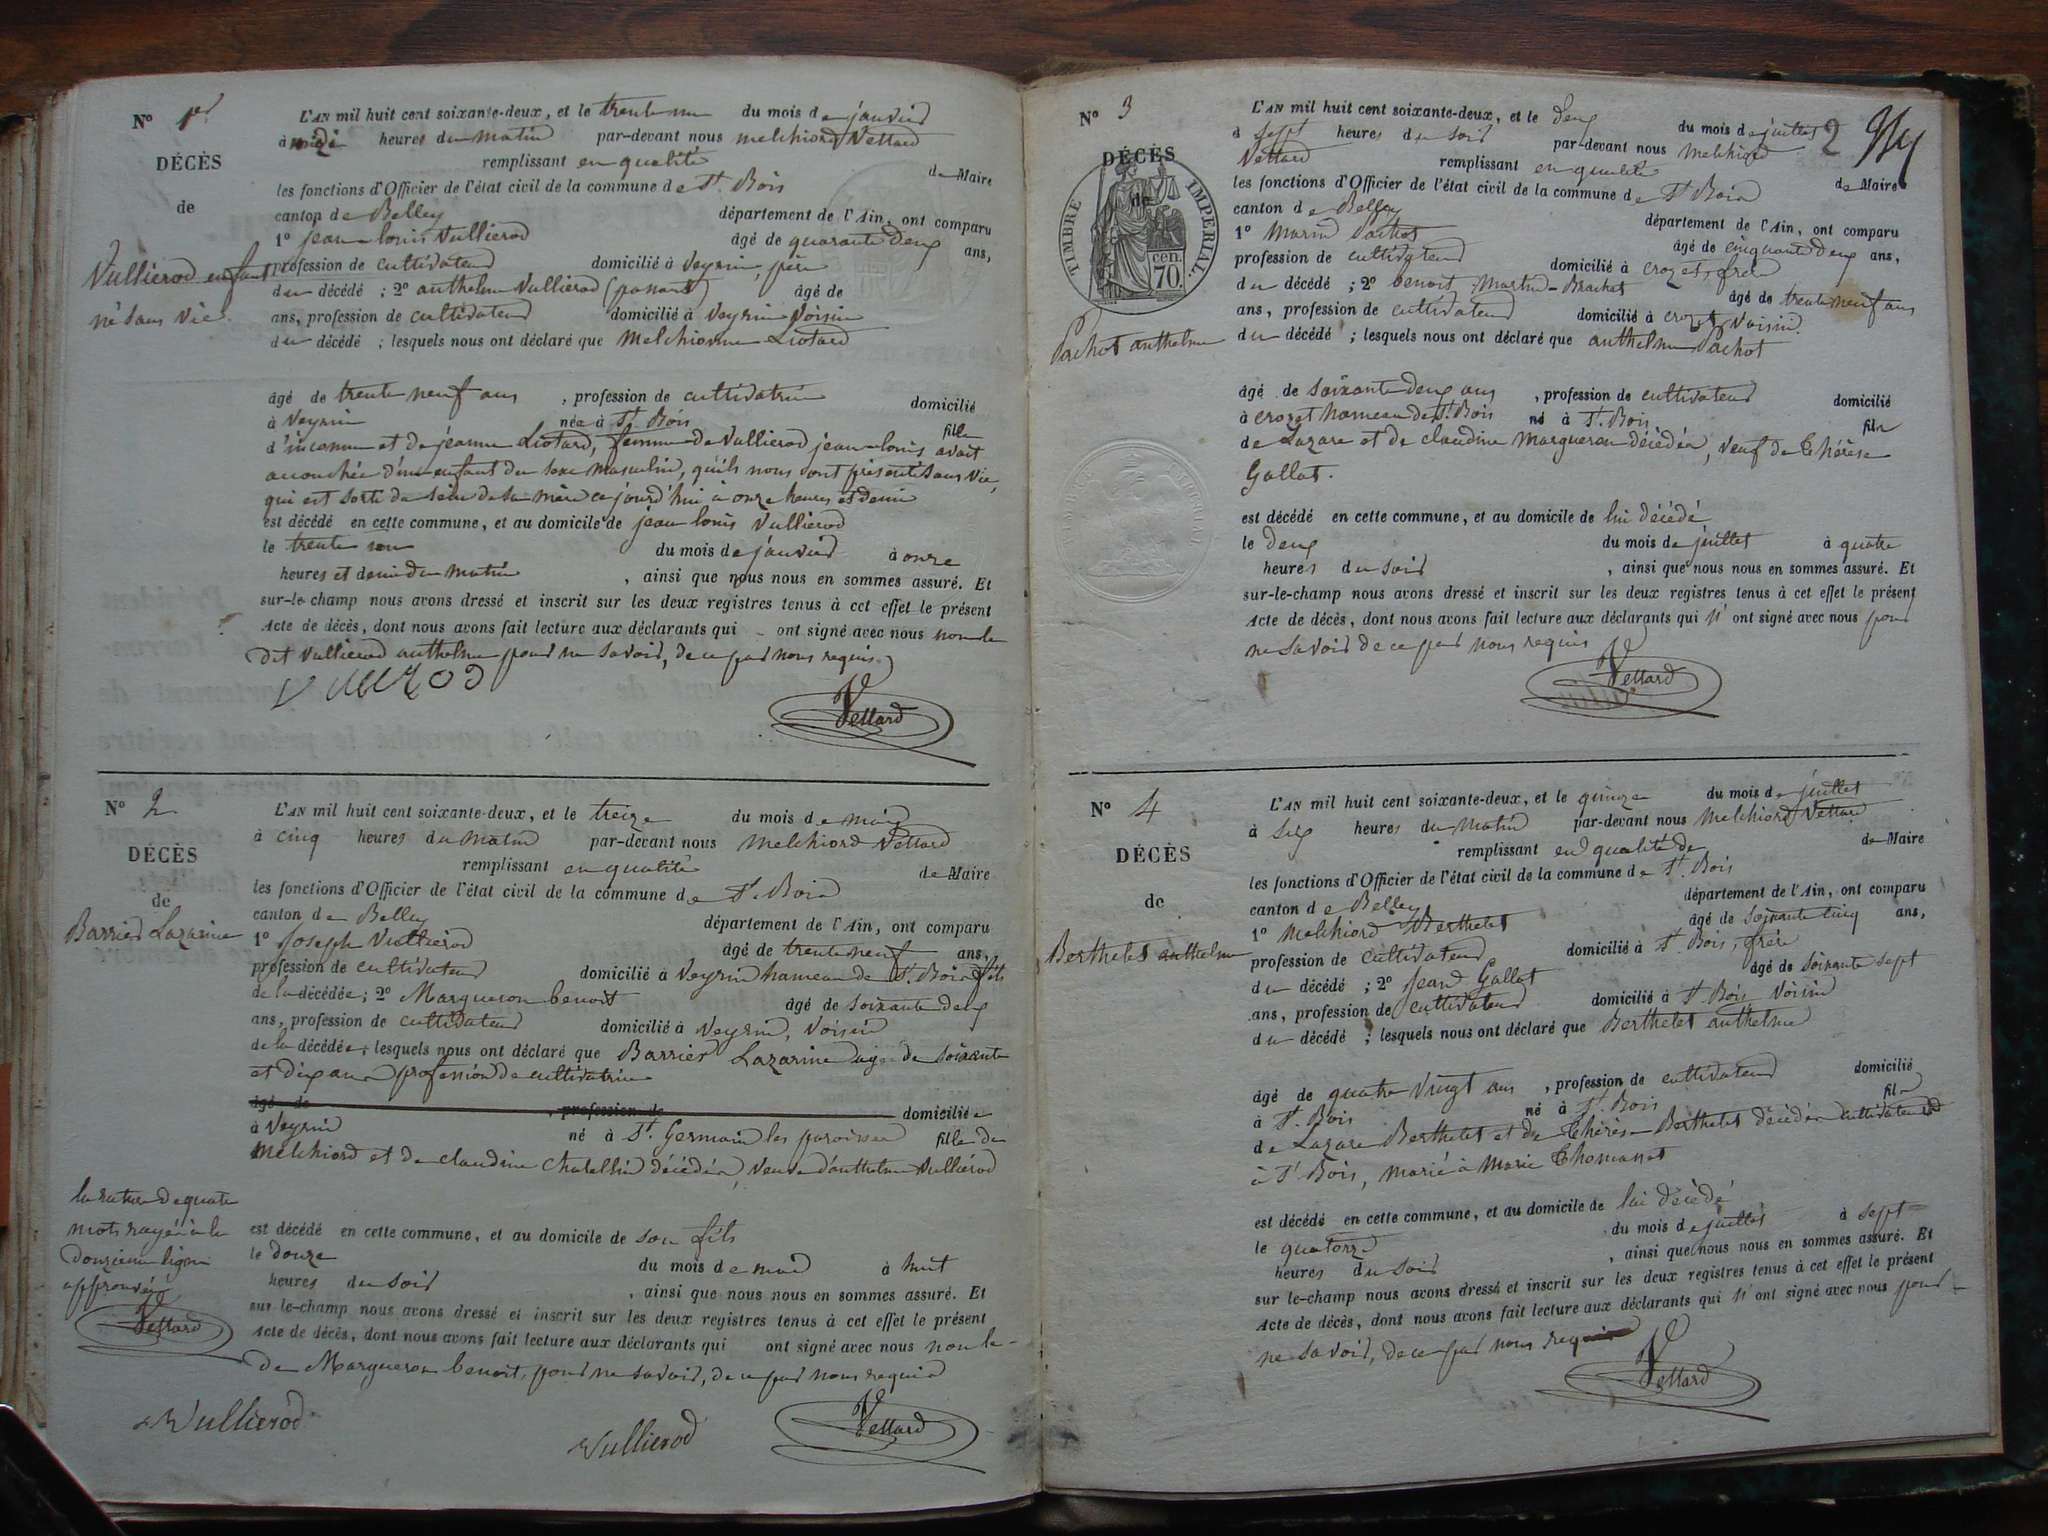 N° 1er
DÉCÈS
de
Vullierod enfant
né sans vie
L'AN mil huit cent soixante-deux, et le trente un du mois de janvier
à heures du matin par-devant nous melchiord Vettard
remplissant en qualité de Maire
les fonctions d'Officier de l'état civil de la commune de St. Bois
canton de Belley département de l'Ain, ont comparu
1° jean-louis Vullierod âgé de quarante deux ans,
profession de cultivateur domicilié à Veyrin, père
du décédé ; 2° anthelme Vullierod (parent) âgé de
ans, profession de cultivateur domicilié à Veyrin Voisin
du décédé ; lesquels nous ont déclaré que Melchionne Liotard
âgé de trente neuf ans , profession de cultivatrice domicilié
à Veyrin née à St. Bois fille
d'inconnu et de jeanne Liotard, femme de Vullierod jean-louis avait
accouchée d'un enfant du sexe masculin, qu'ils nous ont présenté sans vie,
qui est sorti du sein de sa mère ce jourd'hui à onze heures et demie
est décédé en cette commune, et au domicile de jean louis Vullierod
le trente un du mois de janvier à onze
heures et demie du matin , ainsi que nous nous en sommes assuré. Et
sur-le-champ nous avons dressé et inscrit sur les deux registres tenus à cet effet le présent
Acte de décès, dont nous avons fait lecture aux déclarants qui ont signé avec nous non le
dit Vullierod anthelme pour ne savoir, de ce par nous requis
Vettard
N° 2
DÉCÈS
de
Barrier Lazarine
L'AN mil huit cent soixante-deux, et le treize du mois de
à cinq heures du matin par-devant nous Melchiord Vettard
remplissant en qualité de Maire
les fonctions d'Officier de l'état civil de la commune de St. Bois
canton de Belley département de l'Ain, ont comparu
1° Joseph Vullierod âgé de trente neuf ans,
profession de cultivateur domicilié à Veyrin hameau de St. Bois fils
de la décédée ; 2° Margueron benoit âgé de soixante deux
ans, profession de cultivateur domicilié à Veyrin, Voisin
de la décédée ; lesquels nous ont déclaré que Barrier Lazarine âgée de soixante
et dix ans profession de cultivatrice
âgé de , profession de domiciliée
à Veyrin né à St. Germain les paroisses fille de
Melchiord et de claudine Chatellin décédés, veuve d'anthelme Vulliérod
la rature de quatre
mots rayés à la
douzième ligne
approuvée
Vettard
est décédé en cette commune, et au domicile de son fils
le douze du mois de à huit
heures du soir , ainsi que nous nous en sommes assuré. Et
sur-le-champ nous avons dressé et inscrit sur les deux registres tenus à cet effet le présent
Acte de décès, dont nous avons fait lecture aux déclarants qui ont signé avec nous non le
de Margueron benoit, pour ne savoir, de ce par nous requis
Vullierod Vullierod Vettard
N° 3
DÉCÈS
de
TIMBRE IMPERIAL.
70 cen.
Pachot anthelme
2
L'AN mil huit cent soixante-deux, et le deux du mois de juillet
à sept heures du soir par-devant nous Melchiord
Vettard remplissant en qualité de Maire
les fonctions d'Officier de l'état civil de la commune de St. Bois
canton de Belley département de l'Ain, ont comparu
1° Marin Pachot âgé de cinquante deux ans,
profession de cultivateur domicilié à crozet, frère
du décédé ; 2° benoit Martin-Brachet âgé de trente neuf ans
ans, profession de cultivateur domicilié à crozet Voisin
du décédé ; lesquels nous ont déclaré que anthelme Pachot
âgé de soixante deux ans , profession de cultivateur domicilié
à crozet hameau de St. Bois né à St. Bois fils
de Lazare et de claudine Margueron décédés, veuf de thérèse
Gallot.
est décédé en cette commune, et au domicile de lui décédé
le deux du mois de juillet à quatre
heures du soir , ainsi que nous nous en sommes assuré. Et
sur-le-champ nous avons dressé et inscrit sur les deux registres tenus à cet effet le présent
Acte de décès, dont nous avons fait lecture aux déclarants qui n'ont signé avec nous pour
ne savoir de ce par nous requis
Vettard
N° 4
DÉCÈS
de
Berthelet anthelme
L'AN mil huit cent soixante-deux, et le quinze du mois de juillet
à six heures du matin par-devant nous Melchiord Vettard
remplissant en qualité de de Maire
les fonctions d'Officier de l'état civil de la commune de St. Bois
canton de Belley département de l'Ain, ont comparu
1° Melchiord Berthelet âgé de soixante cinq ans,
profession de cultivateur domicilié à St. Bois, frère
du décédé ; 2° Jean Gallot âgé de soixante sept
ans, profession de cultivateur domicilié à St. Bois Voisin
du décédé ; lesquels nous ont déclaré que Berthelet anthelme
âgé de quatre vingt ans , profession de cultivateur domicilié
à St. Bois né à St. Bois fils
de Lazare Berthelet et de thérèse Berthelet décédés cultivateurs
à St. Bois, marié à Marie thomasset
est décédé en cette commune, et au domicile de lui décédé
le quatorze du mois de juillet à sept
heures du soir , ainsi que nous nous en sommes assuré. Et
sur le-champ nous avons dressé et inscrit sur les deux registres tenus à cet effet le présent
Acte de décès, dont nous avons fait lecture aux déclarants qui n'ont signé avec nous pour
ne savoir, de ce par nous requis
Vettard